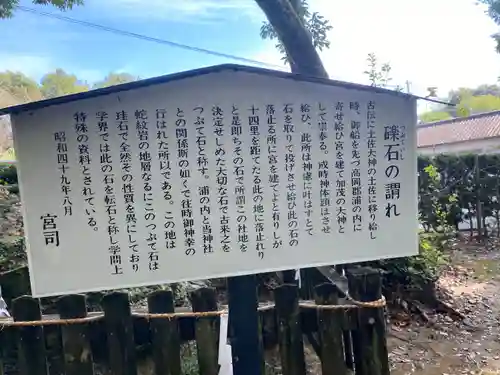 礫石の謂れ
古伝に土佐大神の土佐に移り給し
時、御船を先づ高岡郡浦の内に
寄せ給ひ宮を建て加茂の大神と
して崇奉る。或時神体顕はさせ
給ひ、此所は神慮に叶はずとて
石を取りて投げさせ給ひ此の石の
落止る所に宮を建てよと有りしが
十四里を距てたる此の地に落止れり
と是即ちその石で所謂この社地を
決定せしめた大切な石で古来之を
つぶて石と称す。浦の内と当神社
との関係斯の如くで往時御神幸の
行はれた所以である。この地は
蛇紋岩の地層なるにこのつぶて石は
珪石で全然その性質を異にしており
学界では此の石を転石と称し学問上
特殊の資料とされている。
昭和四十九年八月
宮司